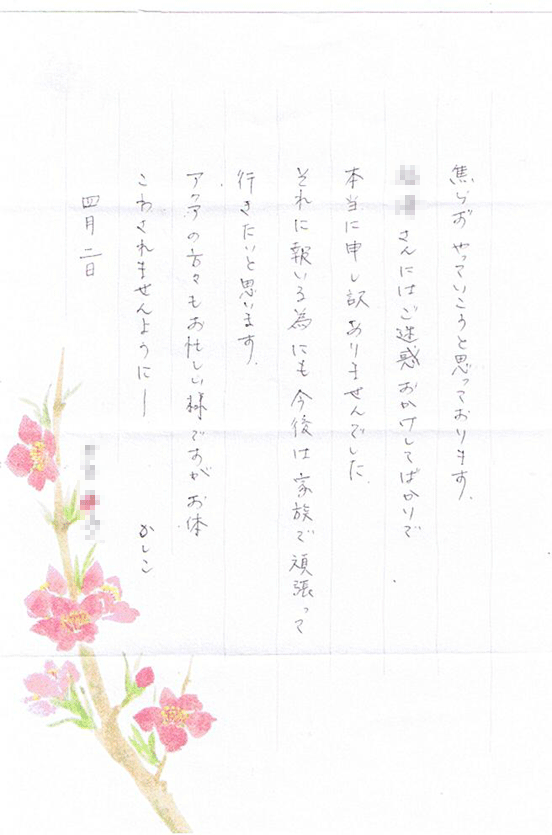 焦らずやっていこうと思っております。
さんにはご迷惑おかけしてばかりで
本当に申し訳ありませんでした。
それに報いる為にも今後は家族で頑張って
行きたいと思います。
アクアの方々もお忙しい様ですが お体
こわされませんようにー
かしこ
四月二日